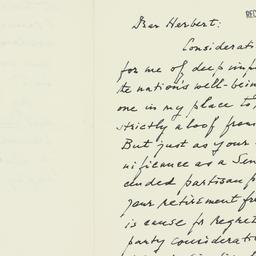 REC
Dear Herbert:
Considerati
for me of deep imp
the nation's well-bein
one in my place to
strictly aloof from
But just as your
nificance as a Sen
cluded partisan p
your retirement fr
is cause for regret
party considerati